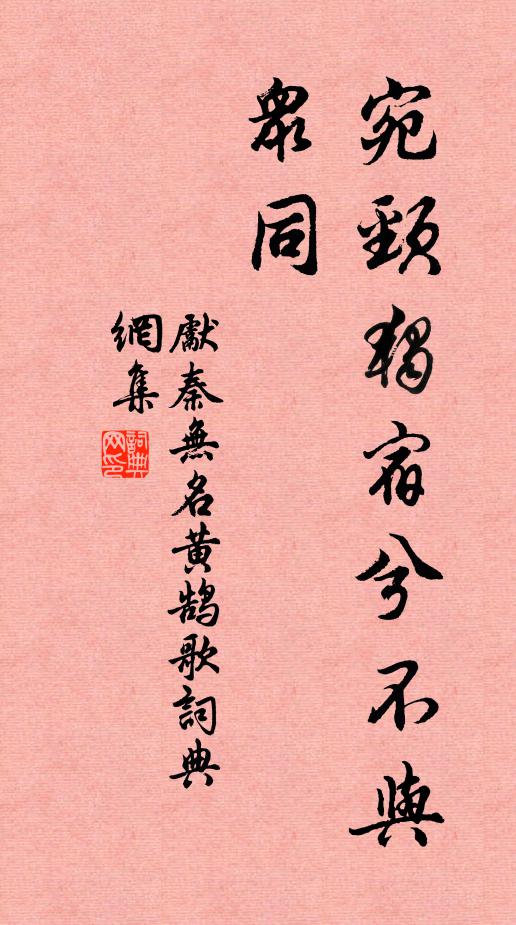 宛頸獨宿兮不與
眾同
獻秦無名黃鵠歌詞典
網集
詞典
网印